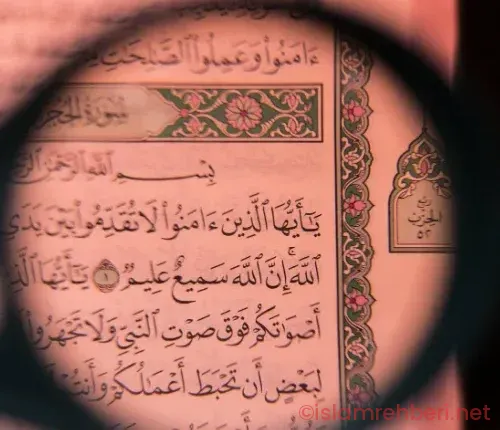 ءَامَنُوا۟ وَعَمِلُوا۟ ٱلصَّٰلِحَٰتِ
سُورَةُ الحُجُرَ
بِسْمِ ٱللَّهِ ٱلرَّحْمَٰنِ
يَٰٓأَيُّهَا ٱلَّذِينَ ءَامَنُوا۟ لَا تُقَدِّمُوا۟ بَيْنَ يَدَىِ
ٱللَّهَ ۚ إِنَّ ٱللَّهَ سَمِيعٌ عَلِيمٌ ١ يَٰٓأَيُّهَا ٱلَّذِ
أَصْوَٰتَكُمْ فَوْقَ صَوْتِ ٱلنَّبِىِّ وَلَا تَجْهَرُوا۟
لِبَعْضٍ أَن تَحْبَطَ أَعْمَٰلُكُمْ وَأَنتُمْ
ربع
الحزب
٥٢
©islamrehberi.net